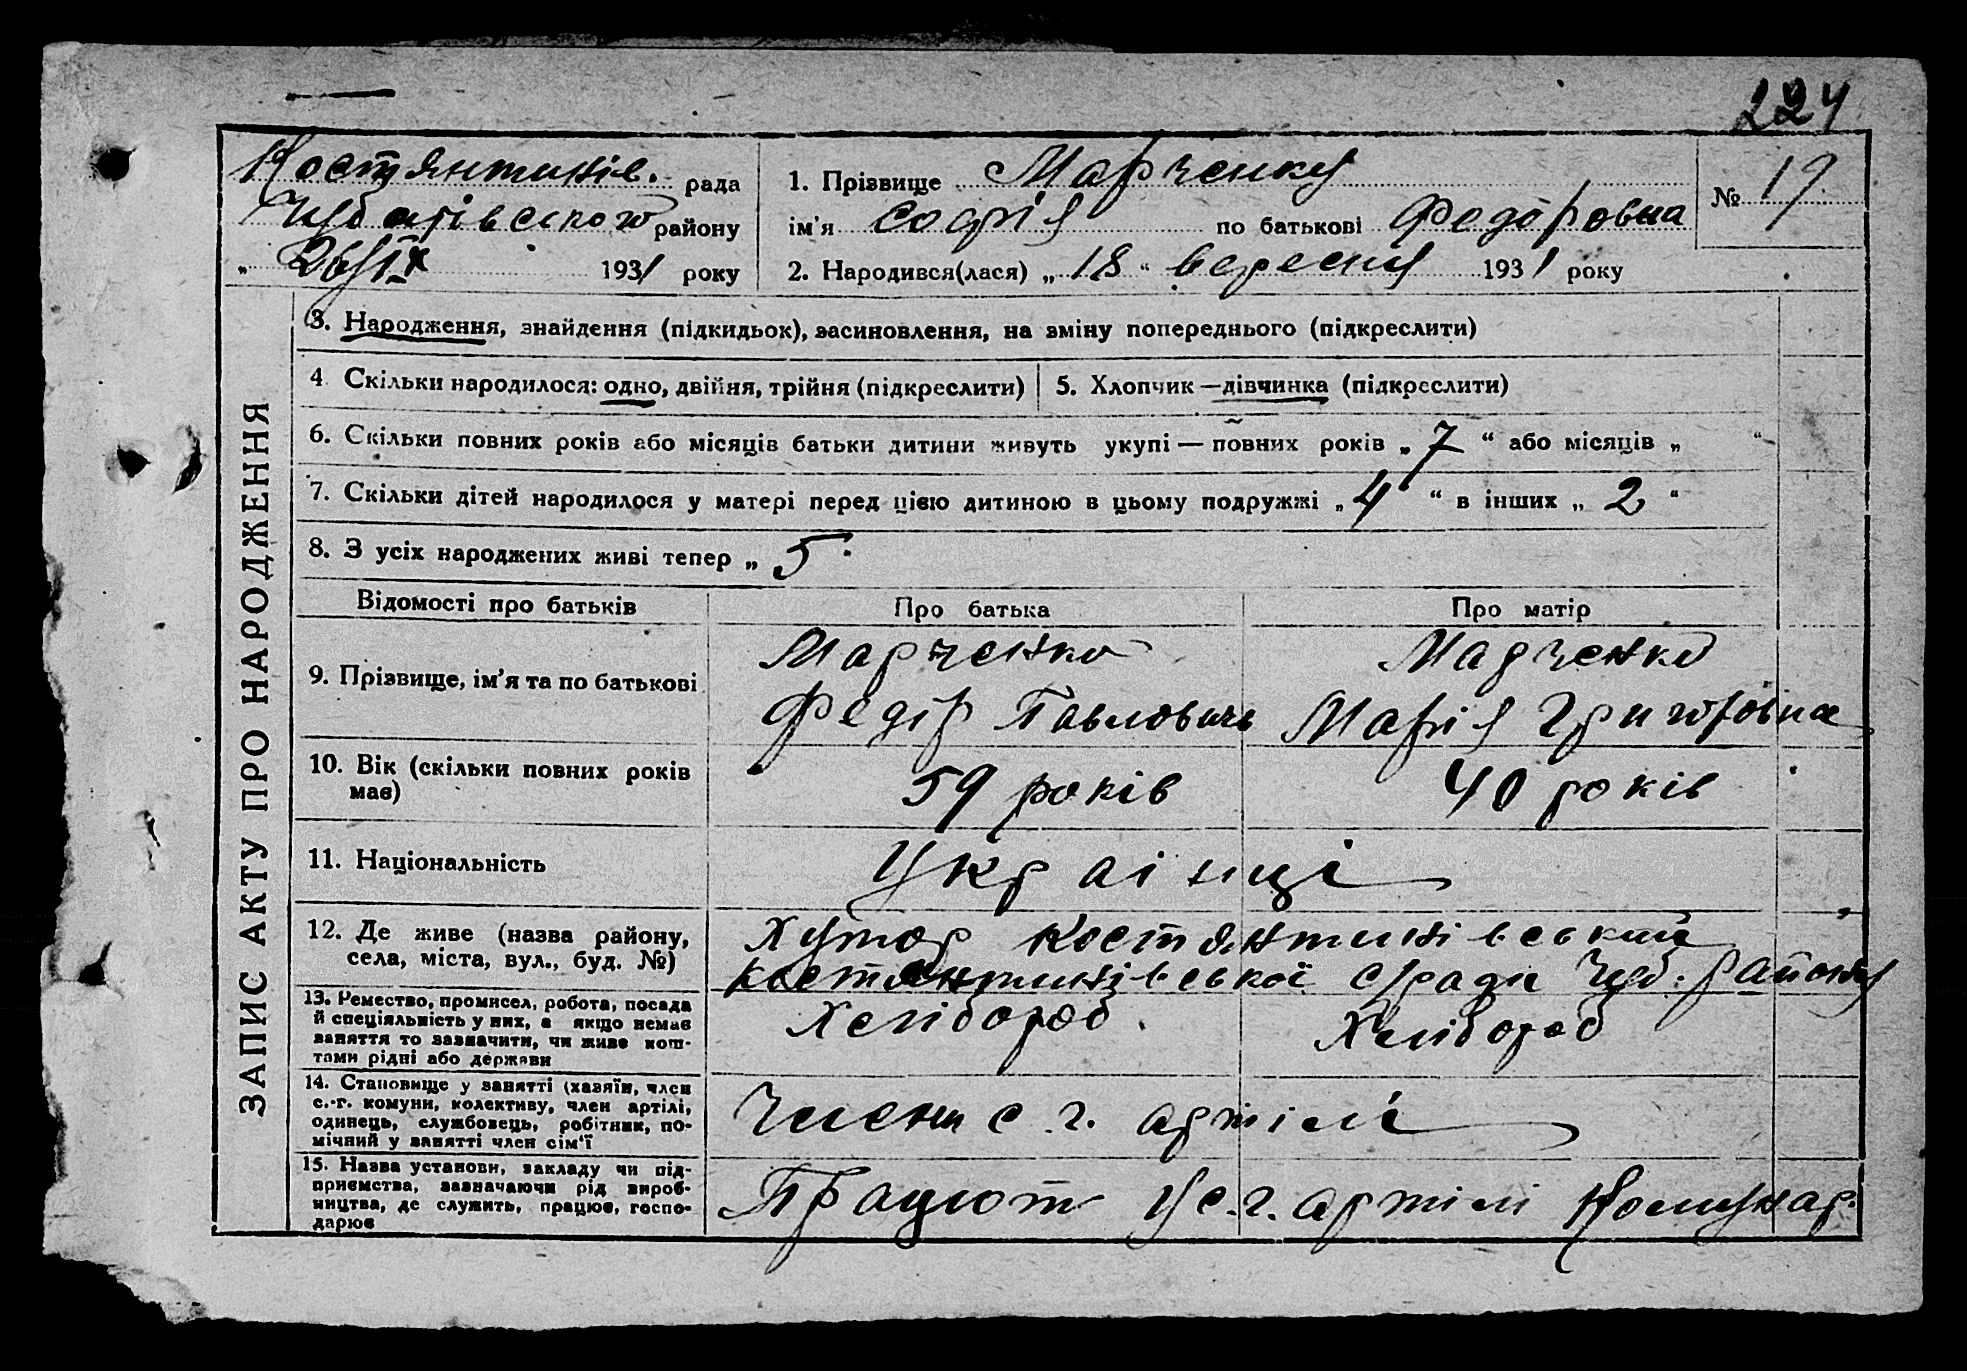 224
Костянтинів. рада
Чубарівського району
„ 26/IX 1931 року
1. Прізвище Марченку
ім'я Софрія по батькові Федоровна
2. Народився(лася) „ 18 “ вересня 1931 року
№ 19
ЗАПИС АКТУ ПРО НАРОДЖЕННЯ
3. Народження, знайдення (підкидьок), засиновлення, на зміну попереднього (підкреслити)
4. Скільки народилося: одно, двійня, трійня (підкреслити) 5. Хлопчик — дівчинка (підкреслити)
6. Скільки повних років або місяців батьки дитини живуть укупі — повних років „ 7 “ або місяців „ “
7. Скільки дітей народилося у матері перед цією дитиною в цьому подружжі „ 4 “ в інших „ 2 “
8. З усіх народжених живі тепер „ 5
Відомості про батьків Про батька Про матір
9. Прізвище, ім'я та по батькові
Марченко
Федір Павлович
Марченко
Марія Григоровна
10. Вік (скільки повних років
має)
59 років
40 років
11. Національність
Українці
12. Де живе (назва району,
села, міста, вул., буд. №)
Хутор Костянтинівський
Костянтинівської с/ради Чуб. району
13. Ремество, промисел, робота, посада
й спеціяльність у них, а якщо немає
заняття то зазначити, чи живе кош-
тами рідні або держави
Хлібороб.
Хлібороб
14. Становище у занятті (хазяїн, член
с.-г. комуни, колективу, член артілі,
одинець, службовець, робітник, по-
мічний у занятті член сім'ї
Члени с. г. артілі
15. Назва установи, закладу чи під-
приємства, зазначаючи рід вироб-
ництва, де служить, працює, госпо-
дарює
Працюют у с.-г. артілі Комунар.